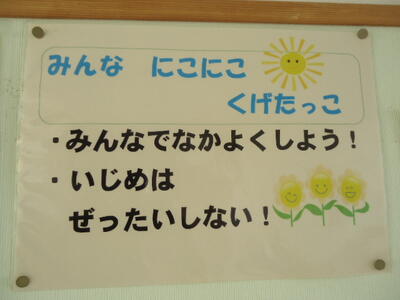 みんな　にこにこ
くげたっこ
・みんなでなかよくしよう！
・いじめは
ぜったいしない！